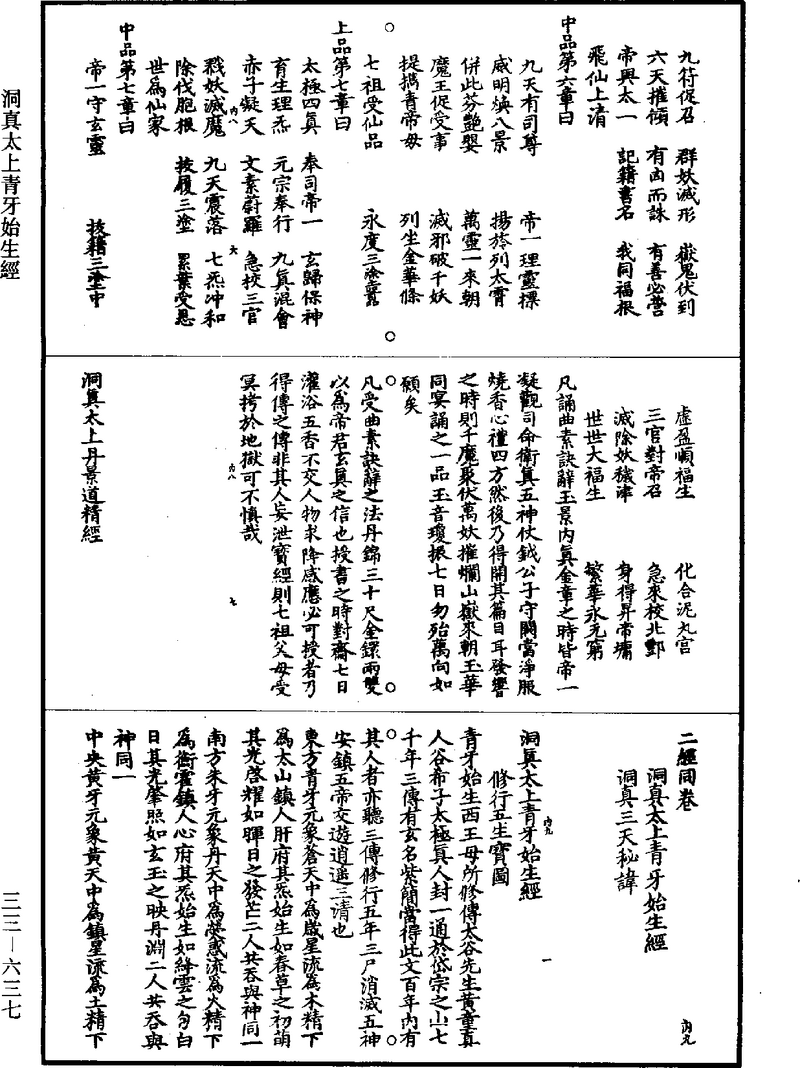 洞真太上青牙始生經
三三—六三七
九符促召　群妖滅形　嶽鬼伏到
六天摧傾　有凶而誅　有善必營
帝興太一　記籍書名　我同福根
飛仙上清
中品第六章曰
九天有司尊　帝一理靈標
威明煥八景　揚旍列太霄
併此芬艷嬰　萬靈一來朝
魔王促受事　滅邪破千妖
提攜青帝母　列坐金華條
七祖受仙品　永度三塗
上品第七章曰
太極四真　奉司帝一　玄歸保神
育生理炁　元宗奉行　九真混會
赤子凝天　文素蔚羅　急校三官
戮妖滅魔　九天震落　七炁冲和
除伐胞根　拔履三塗　累葉受恩
世爲仙家
中品第七章曰
帝一守玄靈　拔籍三塗中
虛盈順福生　化合泥丸宮
三官對帝召　急來校北酆
滅除妖穢津　身得昇帝墉
世世大福生　繁華永无窮
凡誦曲素訣辭玉景内真金章之時皆帝一
凝觀司命衛真五神仗鉞公子守關當淨服
燒香心禮四方然後乃得開其篇目耳發響
之時則千魔聚伏萬妖摧爛山嶽來朝玉華
同宴誦之一品玉音瓊振七日勿殆萬向如
願矣
凡受曲素訣辭之法丹錦三十尺金鐶兩雙
以爲帝君玄真之信也授書之時對齋七日
濯浴五香不交人物求降感應必可授者乃
得傳之傳非其人妄泄寶經則七祖父母受
冥拷於地獄可不慎哉
洞真太上丹景道精經
二經同卷
洞真太上青牙始生經
洞真三天秘諱
内九
洞真太上青牙始生經
修行五生寶圖
青牙始生西王母所修傳太谷先生黃童真
人谷希子太極真人封一通於岱宗之山七
千年三傳有玄名紫簡當得此文百年内有
其人者亦聽三傳修行五年三尸消滅五神
安鎮五帝交遊逍遥三清也
東方青牙元象蒼天中爲歲星流爲木精下
爲太山鎮人肝府其炁始生如春草之初萌
其光啓耀如暉日之發芒二人共吞與神同一
南方朱牙元象丹天中爲熒惑流爲火精下
爲衡霍鎮人心府其炁始生如絳雲之匀白
日其光肇照如玄玉之映丹淵二人共吞與
神同一
中央黃牙元象黃天中爲鎮星流爲土精下